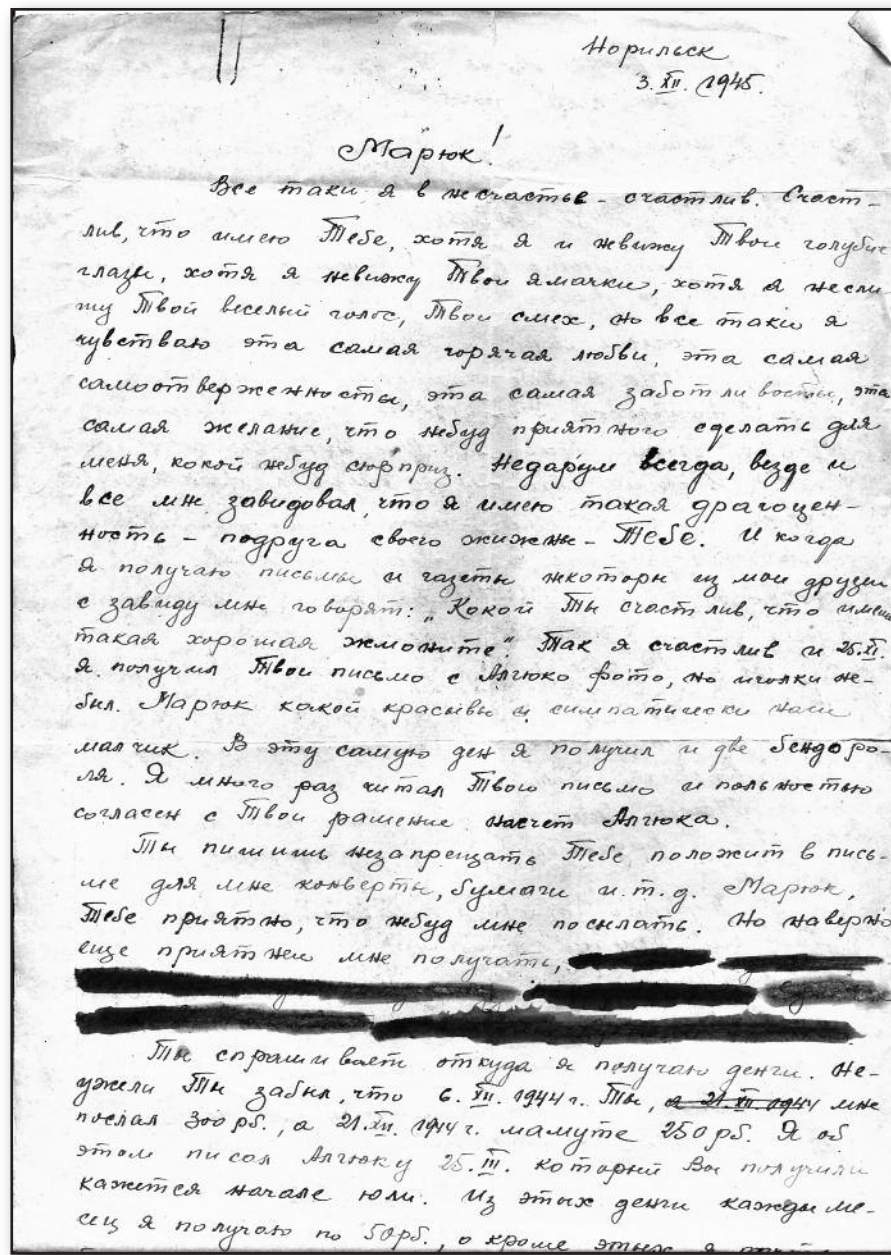 Норильск
3. XII. 1945.
Марюк!
Все таки я в несчастье - счастлив. Счаст-
лив, что имею Тебе, хотя я и невижу Твои голубие
глазы, хотя я невижу Твои ямачки, хотя я несли
шу Твой веселый голос, Твои смех, но все таки я
чувстваю эта самая горячая любви, эта самая
самоотверженносты, эта самая заботливосты, эта
самая желание, что небуд приятного сделать для
меня, кокой небуд сюрприз. Недарум всегда, везде и
все мне завидовал, что я имею такая драгоцен-
ность - подруга своего жижены - Тебе. И когда
я получаю письмы и газеты некоторы из мои друзии
с завиду мне говорят: „Кокой Ты счастлив, что имеш
такая хорошая жмоните". Так я счастлив и 25.XI.
я получил Твои письмо с Алгюко фото, но иголки не-
был. Марюк какой красывы и симпатически наш
малчик. В эту самую ден я получил и две бендоро-
ля. Я много раз читал Твою письмо и польностью
согласен с Твои рашение насчет Алгюка.
Ты пишишь незапрещать Тебе положит в пись-
ме для мне конверты, бумаги и.т.д. Марюк,
Тебе приятно, что небуд мне посылать. Но наверно
еще приятнеи мне получать,
Ты спрашиваеш откуда я получаю денги. Не-
ужели Ты забыл, что 6. XII. 1944 г. Ты, а 21. XII 1944 мне
послал 300 рб., а 21. XII. 1944 г. мамуте 250 рб. Я об
этом писал Алгюку 25. III. которий Вы получили
кажется начале юли. Из этых денги кажды ме-
сец я получаю по 50 рб., а кроме этых я